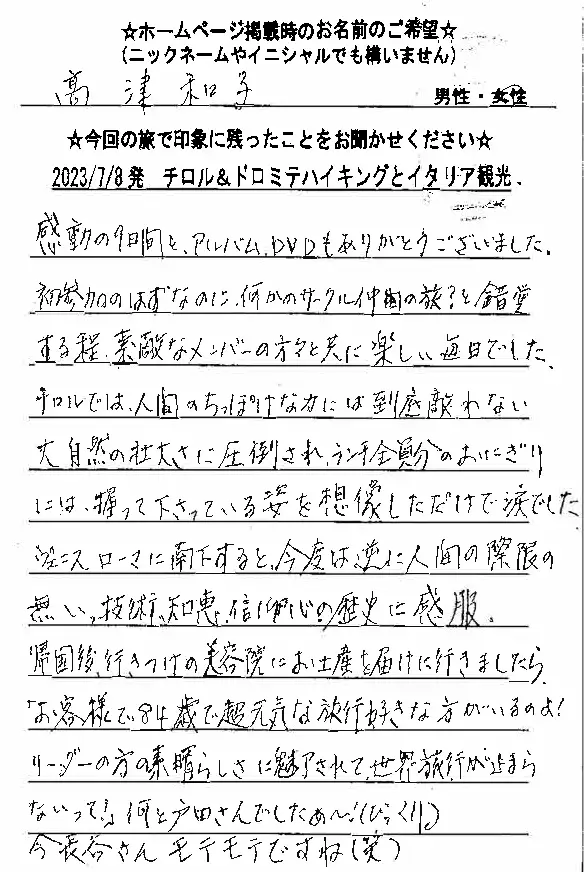 ☆ホームページ掲載時のお名前のご希望☆
(ニックネームやイニシャルでも構いません)
高津 和子
男性・女性
☆今回の旅で印象に残ったことをお聞かせください☆
2023/7/8発 チロル&ドロミテハイキングとイタリア観光.
感動の9日間と、アルバム、DVDもありがとうございました。
初参加のはずなのに、何かのサークル仲間の旅?と錯覚
する程、素敵なメンバーの方々と共に楽しい毎日でした。
チロルでは、人間のちっぽけな力には到底敵わない
大自然の壮大さに圧倒され、ランチ全員分のおにぎり
には、握って下さっている姿を想像しただけで涙でした
ヴェニス ローマに南下すると、今度は逆に人間の際限の
無い、技術、知恵、信仰心の歴史に感服。
帰国後、行きつけの美容院にお土産を届けに行きましたら、
「お客様で84歳で超元気な旅行好きな方がいるのよ!
リーダーの方の素晴らしさに魅了されて、世界旅行が止まら
ないって!」何と戸田さんでしたぁ〜!(びっくり)
今長谷さんモテモテですね(笑)